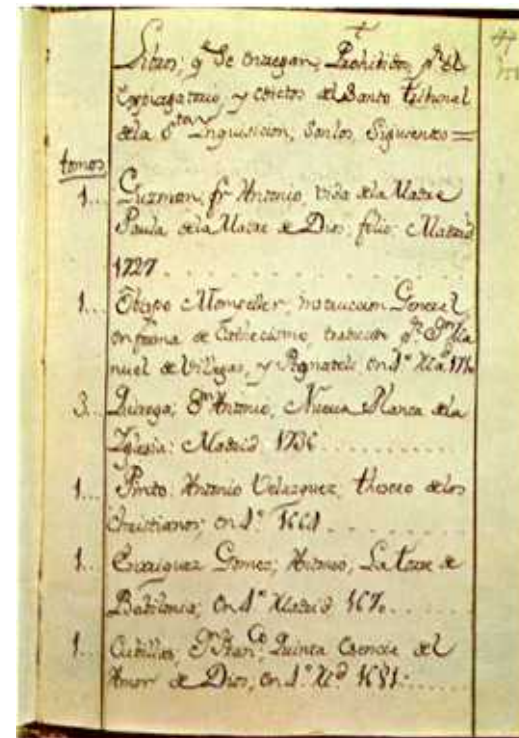 Libros, q. Se entregan, Prohibidos, pr. el
Expurgatorio, y edictos del Santo tribunal
dela Sta. Inquisicion, Sonlos, Siguientes =
tomos
1... Guzman, fr. Antonio, vida dela Madre
Paula dela Madre de Dios, folio: Madrid
1727 . . . . .
1... Obispo Mompeller, instruccion General
en forma de Cathecismo, pr. Dn. Ma
nuel de Villegas, y Pignateli, en 4º
3... Quiroga, Dn. Antonio, Nueva Planta dela
Iglesia: Madrid 1736 . . . . .
1... Pinto: Antonio Velazquez, thesoro delos
Christianos, en 4º. 1661 . . . . .
1... Enriquez Gomez; Antonio, La torre de
Babilonia, en 4º Madrid 1670 . . .
1... Cubillas, Dn. Franco. Quinta Esencia del
Amor de Dios, en 4º. Md. 1681 . . . .